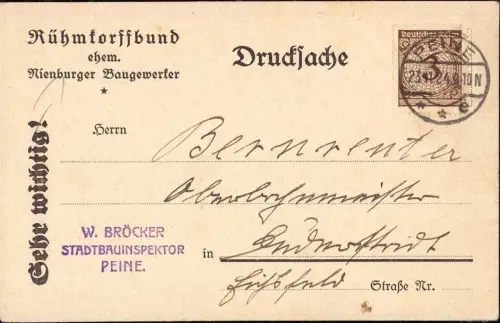 Rühmkorffbund
ehem.
Nienburger Baugewerker
*
Drucksache
Deutsches Reich
3
PEINE
24.9-10N
* * e
Sehr wichtig!
Herrn
Oberbahnmeister
W. BRÖCKER
STADTBAUINSPEKTOR
PEINE.
in Duderstadt
Eichsfeld
Straße Nr.